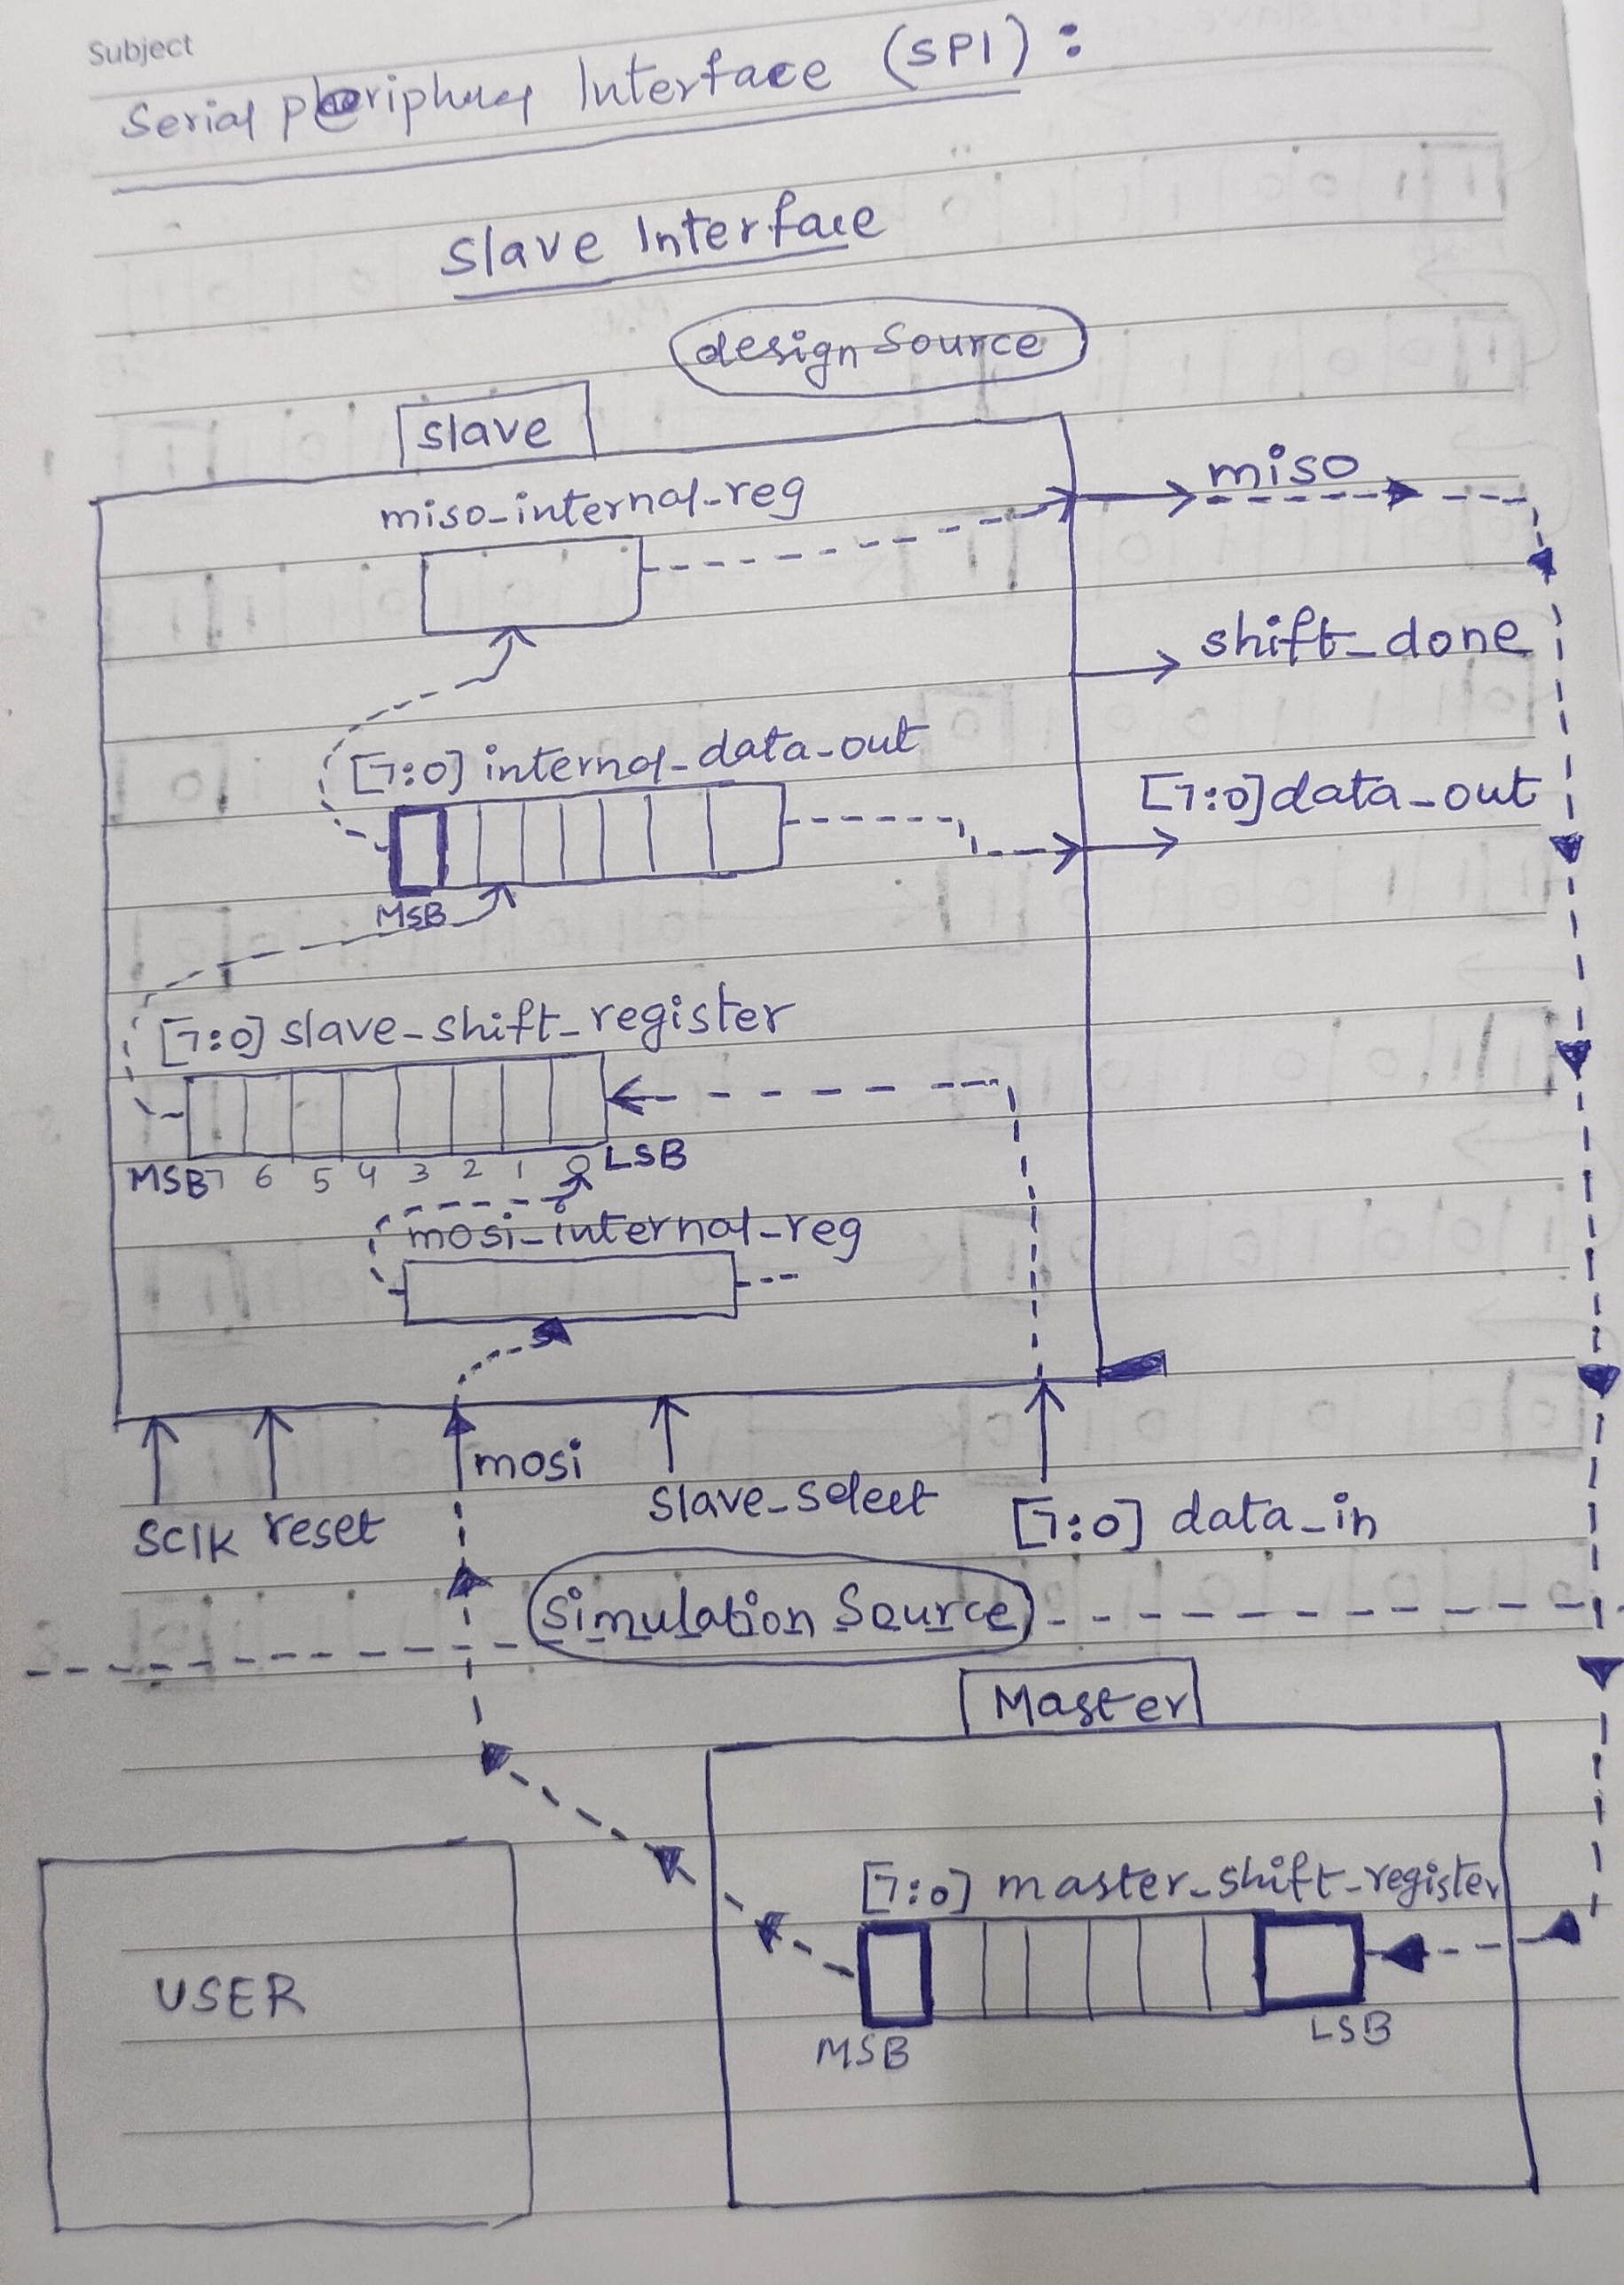 Subject
Serial pheriphery Interface (SPI) :
Slave Interface
design Source
slave
miso_internal_reg
miso
shift_done
[7:0] internal_data_out
[7:0] data_out
MSB
[7:0] slave_shift_register
MSB 7 6 5 4 3 2 1 0 LSB
mosi_internal_reg
mosi
sclk reset
slave_select
[7:0] data_in
Simulation Source
Master
[7:0] master_shift_register
USER
MSB
LSB